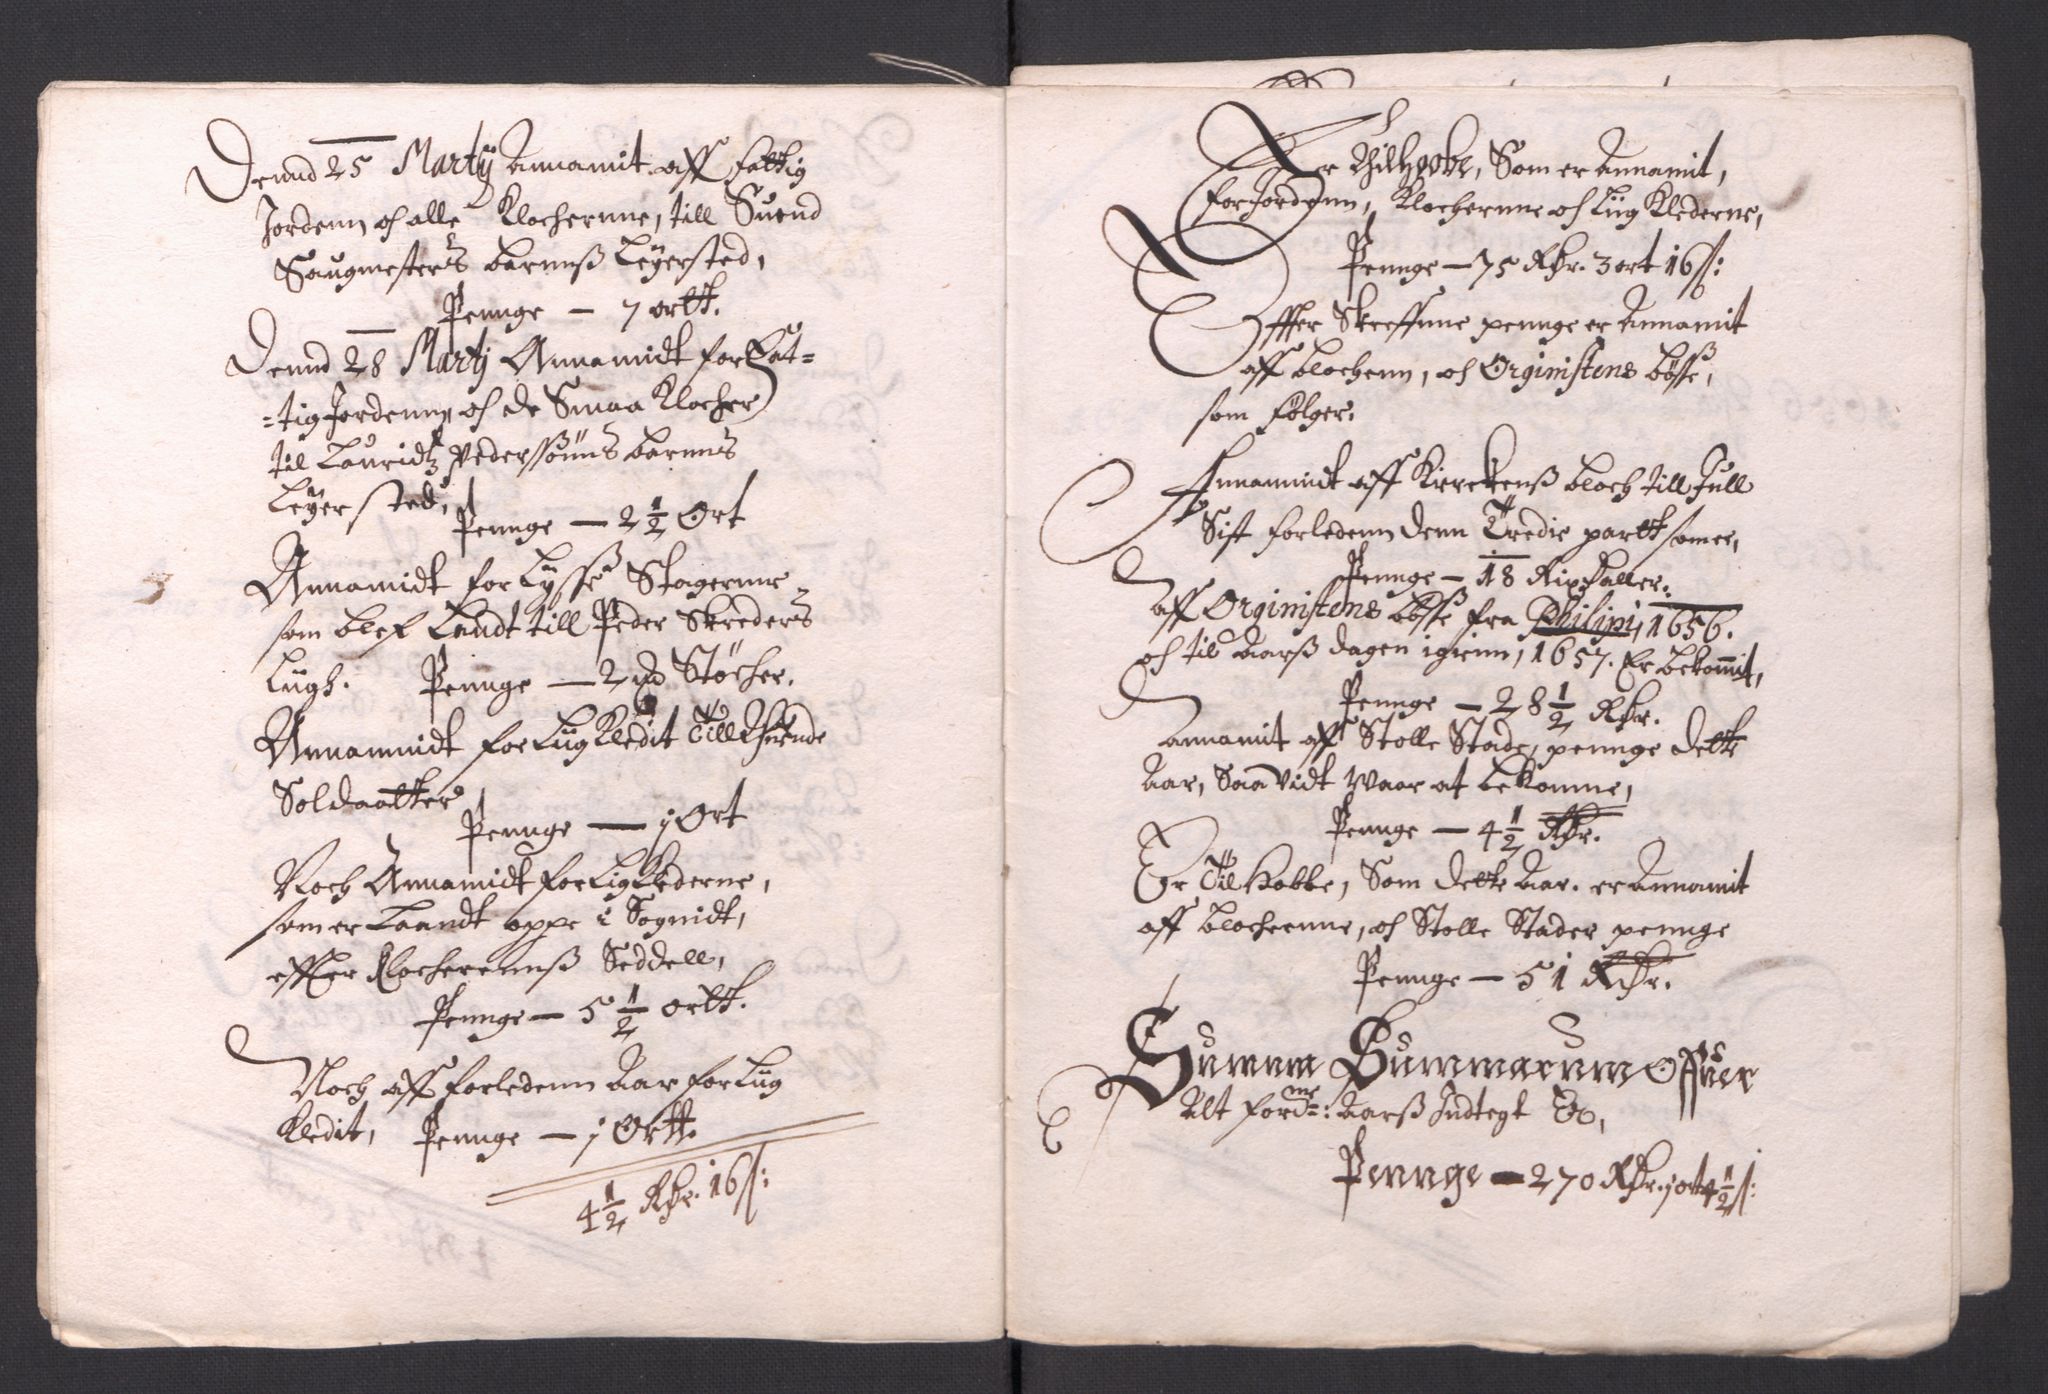 Dennd 25 Martÿ Annamit aff Fattig
Jordenn och alle Klochernne, till Suend
Saugmesters barnnß Leÿersted,
Pennge — 7 ortt.
Dennd 28 Martj Annamidt for Fat=
=tig Jordenn, och de Smaa Klocher
til Lauridtz Pederssöns barnns
Leÿersted, Pennge — 2 1/2 Ort
Annamidt for Lÿsse Stagernne
som blef Laandt till Peder Skreders
Lügh. Pennge — 2 Stöcher.
Annammidt for Lüg Kledit Till Thuende
Soldaatter
Pennge — j Ort
Noch Annamidt for Lig Klederne,
som er Laandt oppe i Sognidt,
effter Klocherennß Seddell,
Pennge — 5 1/2 ortt.
Noch aff forledenn Aar for Lüg
Kledit, Pennge — j Ortt.
4 1/2 Rdr. 16 ß:
Er Tilhobe, Som er Annamit,
for Jordenn, Klochernne och Lüg Klederne,
Pennge — 75 Rdr. 3 ort 16 ß:
Effter Skreffnne pennge er Annamit
aff blochenn, och Orginistens bösse,
som følger.
Annammidt aff Kirckenß bloch till Jull
Sist forledenn denn Tredie partt som er,
Pennge — 18 Rixdaller.
aff Orginistens bösse fra Philipi, 1656.
och til Aarß dagen igienn, 1657. Er bekommit,
Pennge — 28 1/2 Rdr.
Annamit aff Stolle Stade, pennge dette
Aar, Saa vidt Waar at bekomme,
Pennge — 4 1/2 Rdr.
Er Til Hobbe, Som dette Aar. er Annamit
aff blochenne, och Stolle Stader pennge
Pennge — 51 Rdr.
Summa Summarum Offuer
Alt forne: Aarß Indtegt Er,
Pennge — 270 Rdr. j ort 4 1/2 ß: